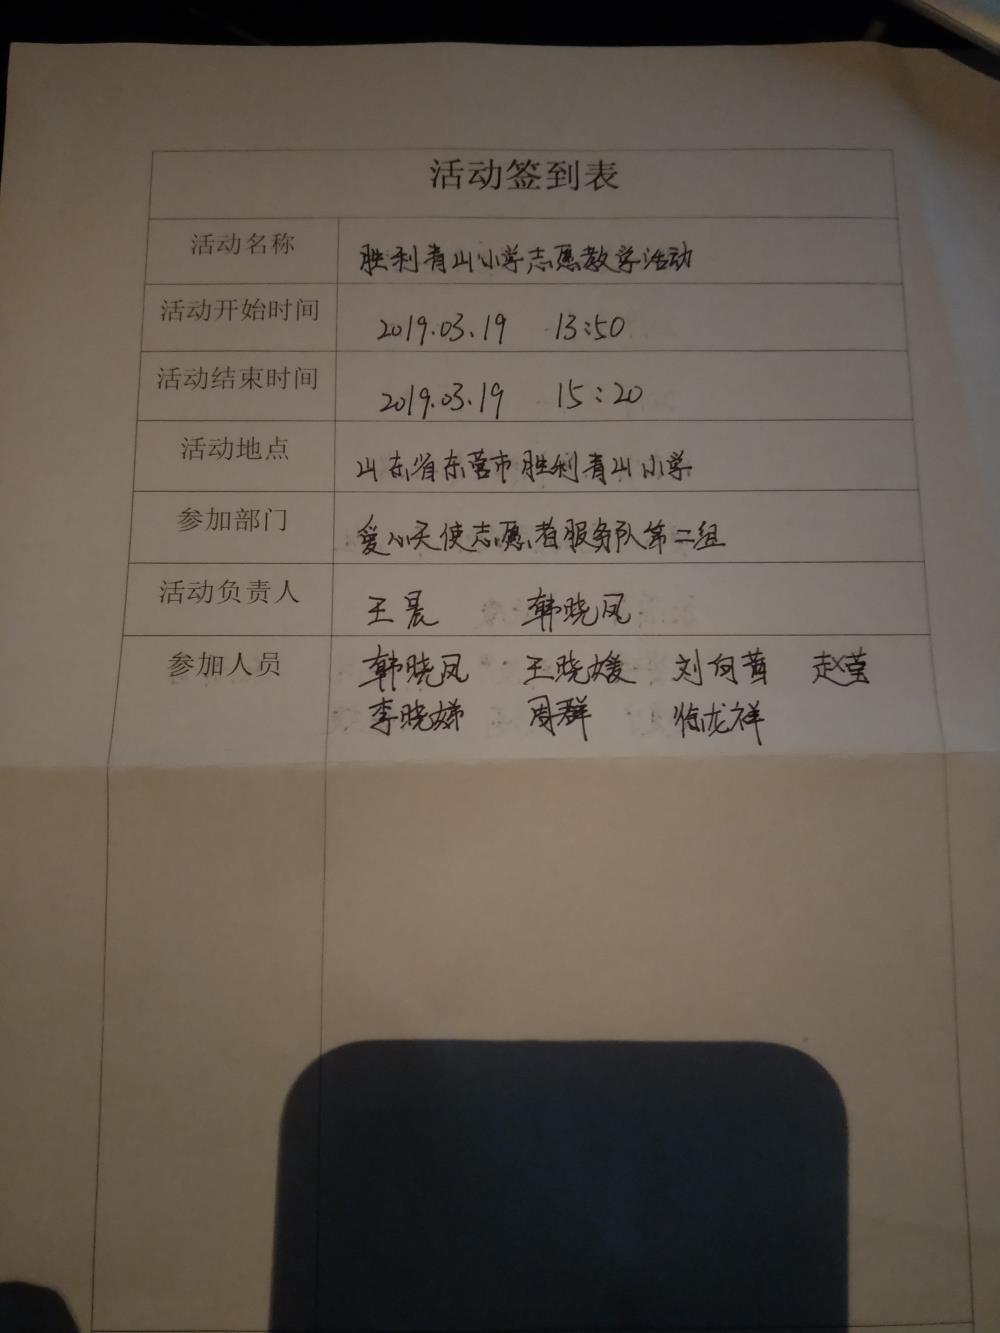 活动签到表
活动名称 胜利青山小学志愿教学活动
活动开始时间 2019.03.19 13:50
活动结束时间 2019.03.19 15:20
活动地点 山东省东营市胜利青山小学
参加部门 爱心天使志愿者服务队第二组
活动负责人 王晨 韩晓凤
参加人员 韩晓凤 王晓媛 刘向茸 赵莹
李晓娣 周群 徐龙祥